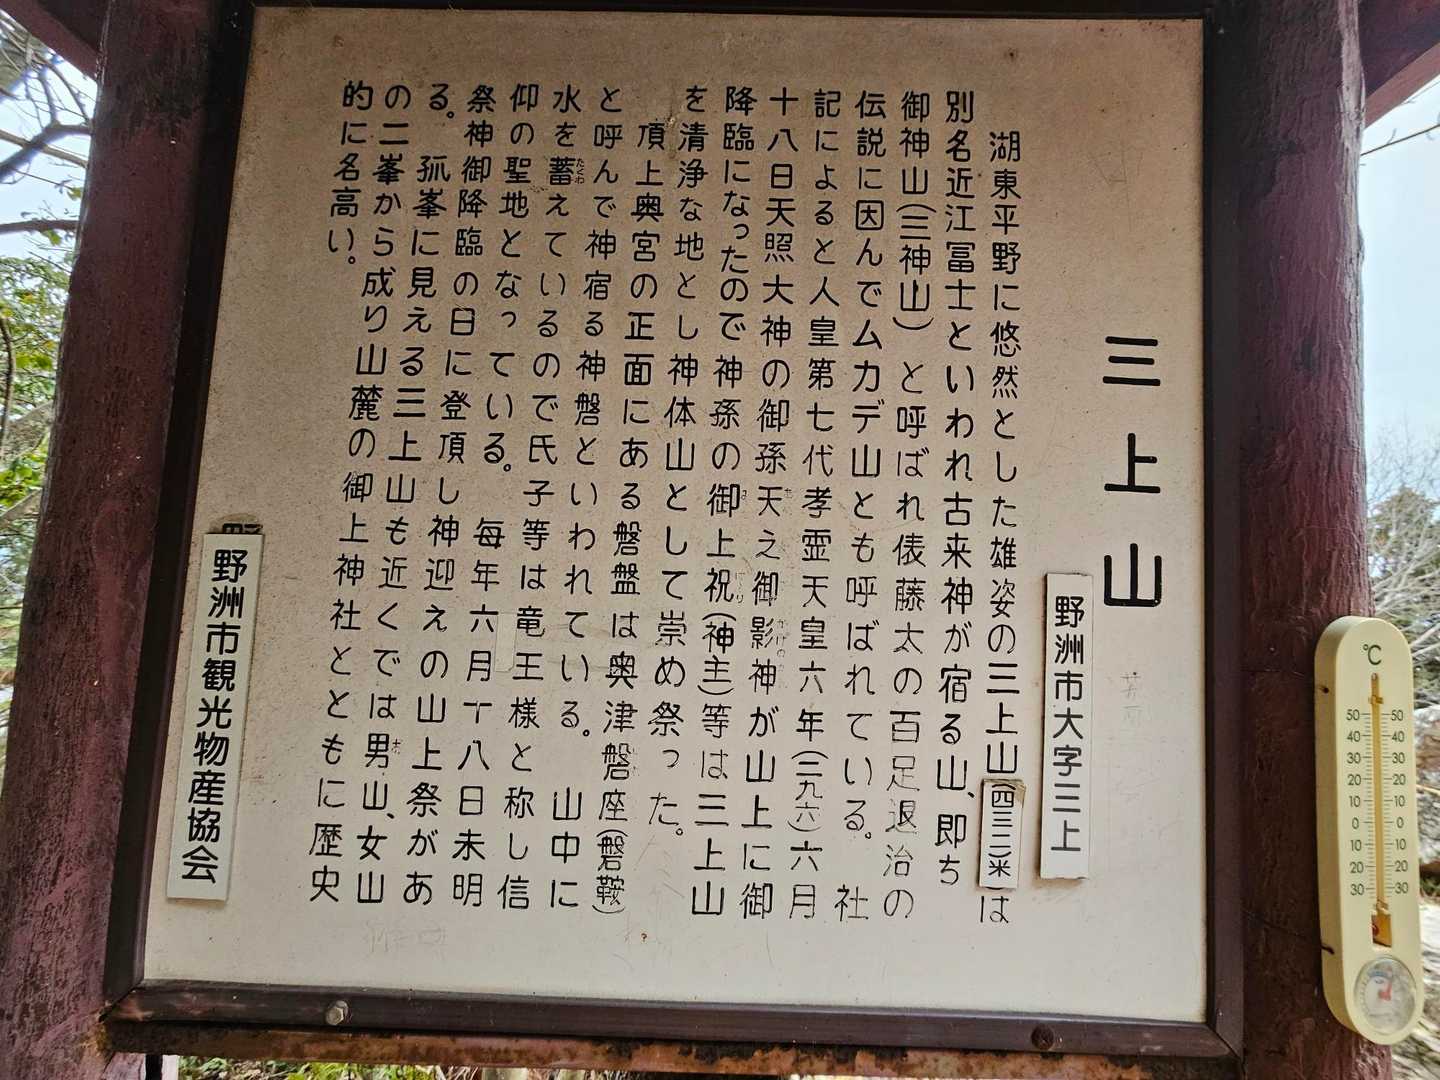 三上山
野洲市大字三上
湖東平野に悠然とした雄姿の三上山(四三二米)は
別名近江冨士といわれ古来神が宿る山、即ち
御神山(三神山)と呼ばれ俵藤太の百足退治の
伝説に因んでムカデ山とも呼ばれている。社
記によると人皇第七代孝霊天皇六年(二九六)六月
十八日天照大神の御孫天之御影神が山上に御
降臨になったので神孫の御上祝(神主)等は三上山
を清浄な地とし神体山として崇め祭った。
頂上奥宮の正面にある磐盤は奥津磐座(磐鞍)
と呼んで神宿る神磐といわれている。山中に
水を蓄えているので氏子等は竜王様と称し信
仰の聖地となっている。毎年六月十八日未明
祭神御降臨の日に登頂し神迎えの山上祭があ
る。孤峯に見える三上山も近くでは男山、女山
の二峯から成り山麓の御上神社とともに歴史
的に名高い。
野洲市観光物産協会
℃
50 50
40 40
30 30
20 20
10 10
0 0
10 10
20 20
30 30